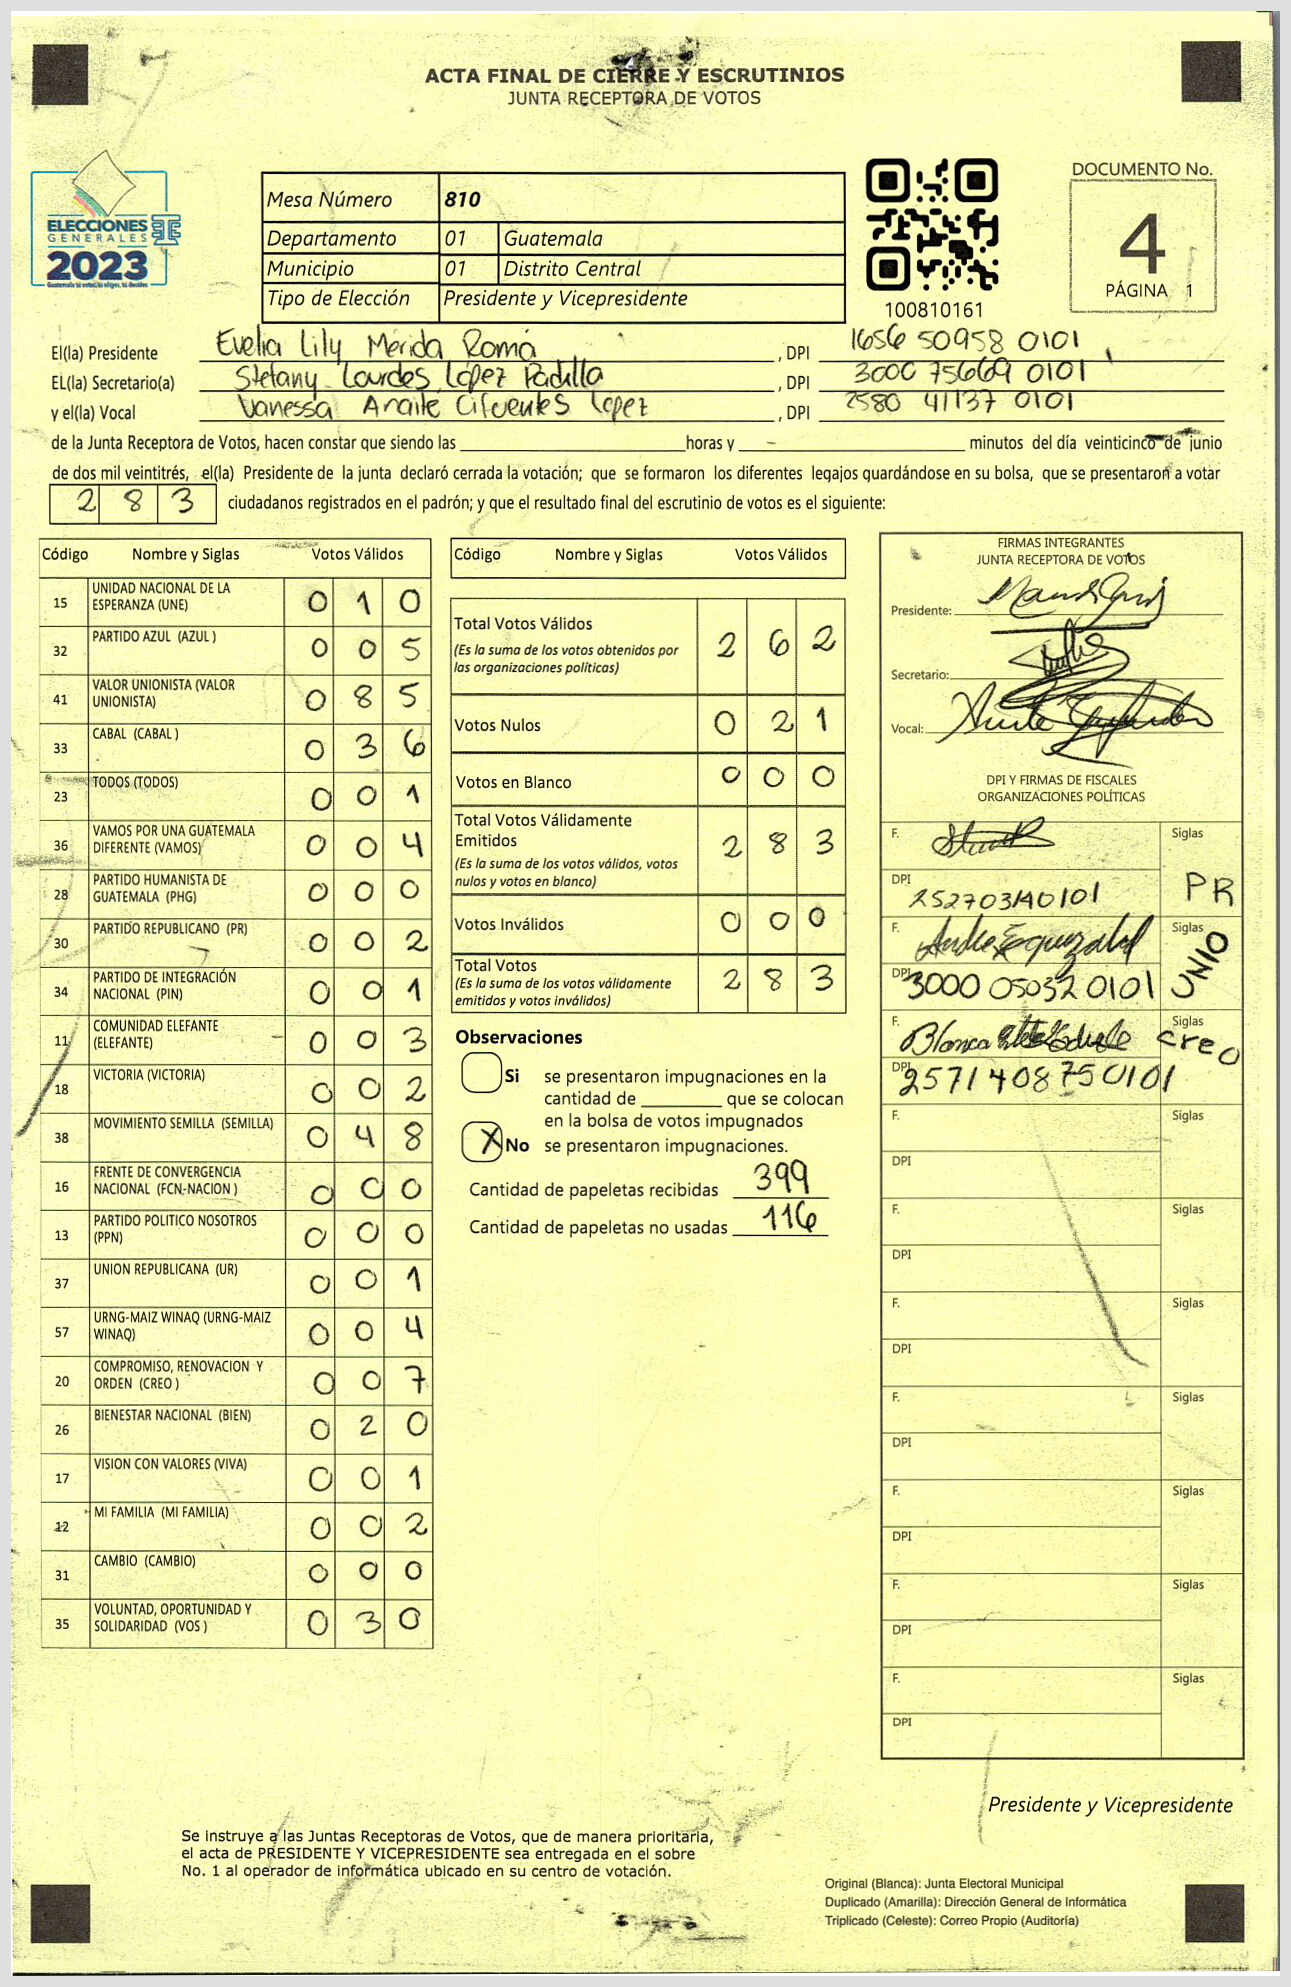 ACTA FINAL DE CIERRE Y ESCRUTINIOS
JUNTA RECEPTORA DE VOTOS
ELECCIONES
GENERALES
2023
Guatemala tú votas, tú eliges, tú decides
Mesa Número 810
Departamento 01 Guatemala
Municipio 01 Distrito Central
Tipo de Elección Presidente y Vicepresidente
100810161
DOCUMENTO No.
4
PÁGINA 1
El(la) Presidente Evelia Lily Mérida Romá , DPI 1656 50958 0101
EL(la) Secretario(a) Stefany Lourdes López Padilla , DPI 3000 75669 0101
y el(la) Vocal Vanessa Anaite Cifuentes Lopez , DPI 2580 41137 0101
de la Junta Receptora de Votos, hacen constar que siendo las horas y minutos del día veinticinco de junio
de dos mil veintitrés, el(la) Presidente de la junta declaró cerrada la votación; que se formaron los diferentes legajos guardándose en su bolsa, que se presentaron a votar
2 8 3 ciudadanos registrados en el padrón; y que el resultado final del escrutinio de votos es el siguiente:
Código Nombre y Siglas Votos Válidos
15 UNIDAD NACIONAL DE LA ESPERANZA (UNE) 0 1 0
32 PARTIDO AZUL (AZUL ) 0 0 5
41 VALOR UNIONISTA (VALOR UNIONISTA) 0 8 5
33 CABAL (CABAL ) 0 3 6
23 TODOS (TODOS) 0 0 1
36 VAMOS POR UNA GUATEMALA DIFERENTE (VAMOS) 0 0 4
28 PARTIDO HUMANISTA DE GUATEMALA (PHG) 0 0 0
30 PARTIDO REPUBLICANO (PR) 0 0 2
34 PARTIDO DE INTEGRACIÓN NACIONAL (PIN) 0 0 1
11 COMUNIDAD ELEFANTE (ELEFANTE) 0 0 3
18 VICTORIA (VICTORIA) 0 0 2
38 MOVIMIENTO SEMILLA (SEMILLA) 0 4 8
16 FRENTE DE CONVERGENCIA NACIONAL (FCN-NACION ) 0 0 0
13 PARTIDO POLITICO NOSOTROS (PPN) 0 0 0
37 UNION REPUBLICANA (UR) 0 0 1
57 URNG-MAIZ WINAQ (URNG-MAIZ WINAQ) 0 0 4
20 COMPROMISO, RENOVACION Y ORDEN (CREO ) 0 0 7
26 BIENESTAR NACIONAL (BIEN) 0 2 0
17 VISION CON VALORES (VIVA) 0 0 1
12 MI FAMILIA (MI FAMILIA) 0 0 2
31 CAMBIO (CAMBIO) 0 0 0
35 VOLUNTAD, OPORTUNIDAD Y SOLIDARIDAD (VOS ) 0 3 0
Código Nombre y Siglas Votos Válidos
Total Votos Válidos 2 6 2
(Es la suma de los votos obtenidos por
las organizaciones políticas)
Votos Nulos 0 2 1
Votos en Blanco 0 0 0
Total Votos Válidamente
Emitidos 2 8 3
(Es la suma de los votos válidos, votos
nulos y votos en blanco)
Votos Inválidos 0 0 0
Total Votos 2 8 3
(Es la suma de los votos válidamente
emitidos y votos inválidos)
Observaciones
Si se presentaron impugnaciones en la
cantidad de que se colocan
en la bolsa de votos impugnados
X No se presentaron impugnaciones.
Cantidad de papeletas recibidas 399
Cantidad de papeletas no usadas 116
FIRMAS INTEGRANTES
JUNTA RECEPTORA DE VOTOS
Presidente:
Secretario:
Vocal:
DPI Y FIRMAS DE FISCALES
ORGANIZACIONES POLÍTICAS
F. Siglas
DPI 252703140101 PR
F. Siglas
DPI 3000 05032 0101 UNIO
F. Blanca Siglas Creo
DPI 2571408750101
F. Siglas
DPI
F. Siglas
DPI
F. Siglas
DPI
F. Siglas
DPI
F. Siglas
DPI
F. Siglas
DPI
F. Siglas
DPI
Presidente y Vicepresidente
Se instruye a las Juntas Receptoras de Votos, que de manera prioritaria,
el acta de PRESIDENTE Y VICEPRESIDENTE sea entregada en el sobre
No. 1 al operador de informática ubicado en su centro de votación.
Original (Blanca): Junta Electoral Municipal
Duplicado (Amarilla): Dirección General de Informática
Triplicado (Celeste): Correo Propio (Auditoría)